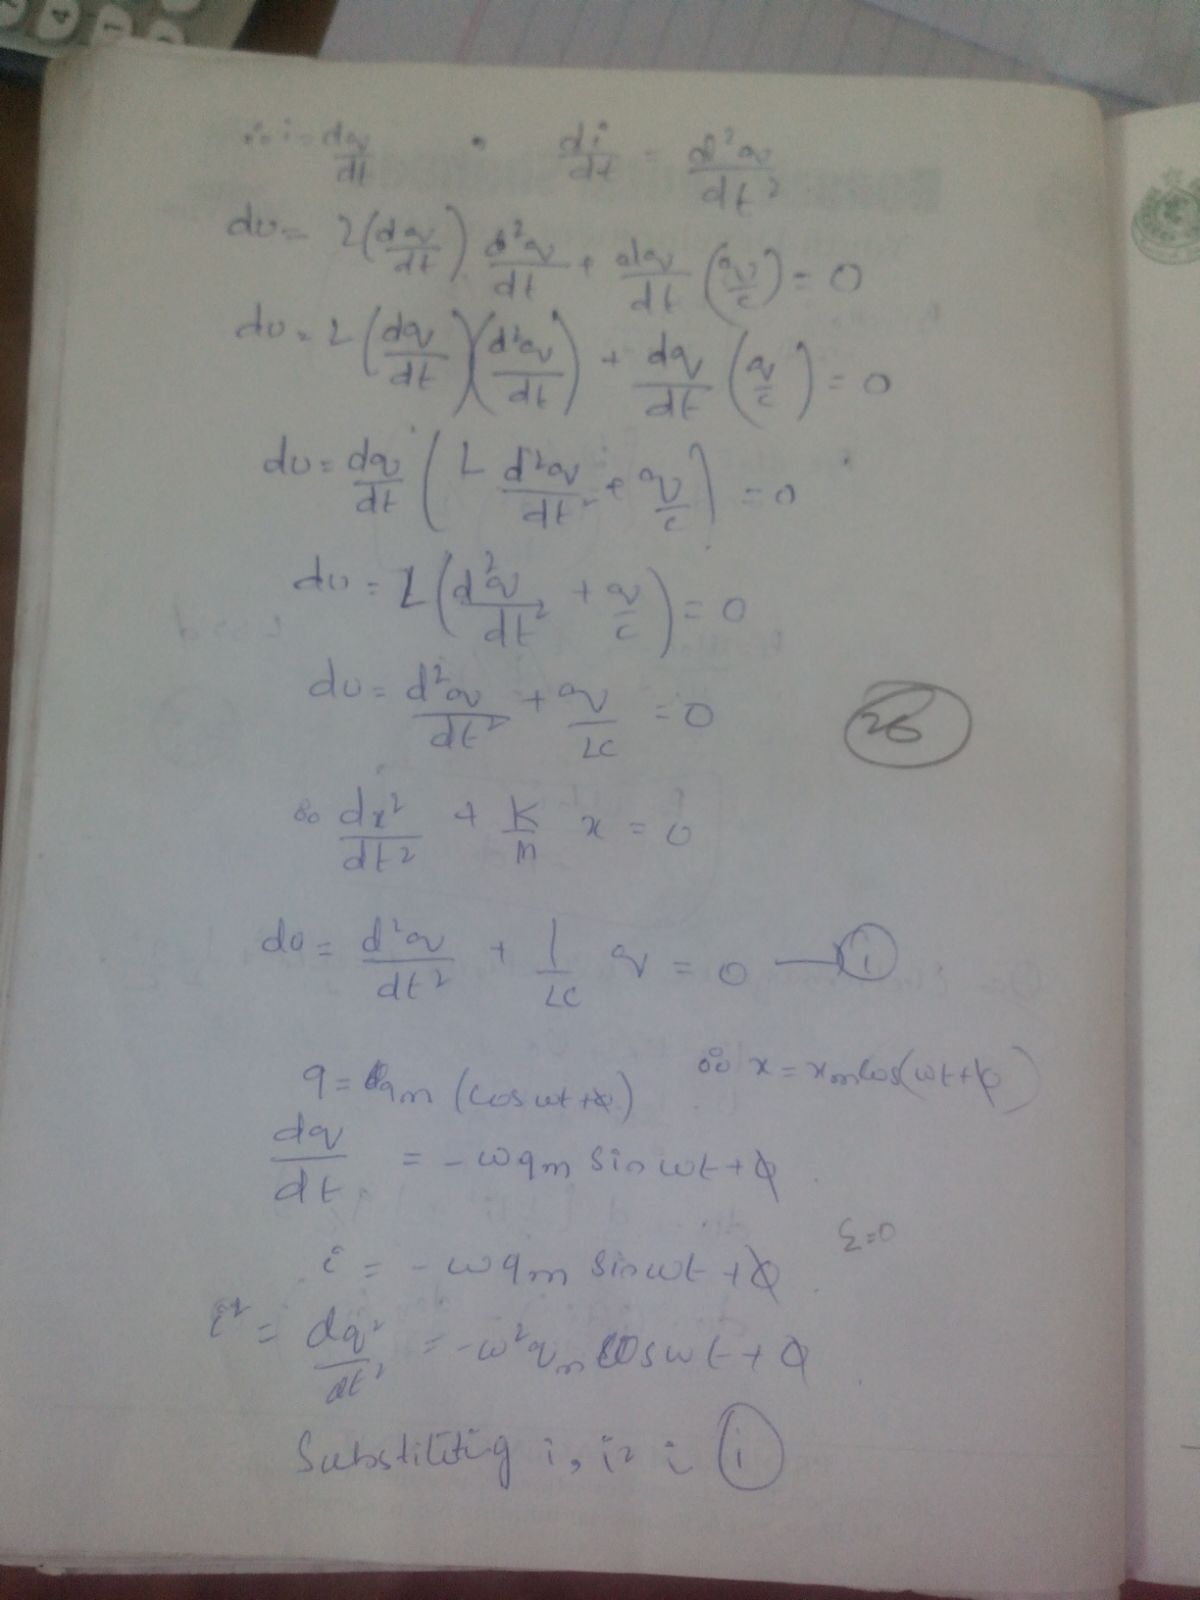 ∴ i = dq/dt . di/dt = d²q/dt²
du = L(dq/dt) d²q/dt + dq/dt (q/c) = 0
du = L(dq/dt)(d²q/dt) + dq/dt (q/c) = 0
du = dq/dt (L d²q/dt² + q/c) = 0
du = L(d²q/dt² + q/c) = 0
du = d²q/dt² + q/LC = 0
26
∴ dx²/dt² + K/m x = 0
du = d²q/dt² + 1/LC q = 0 → (i)
q = qm (cos ωt + ϕ) ∴ x = xm cos(ωt + ϕ)
dq/dt = -ω qm sin ωt + ϕ
ξ=0
i = -ω qm sin ωt + ϕ
i² = dq²/dt² = -ω² qm cos ωt + ϕ
Substiliting i, i² i (i)